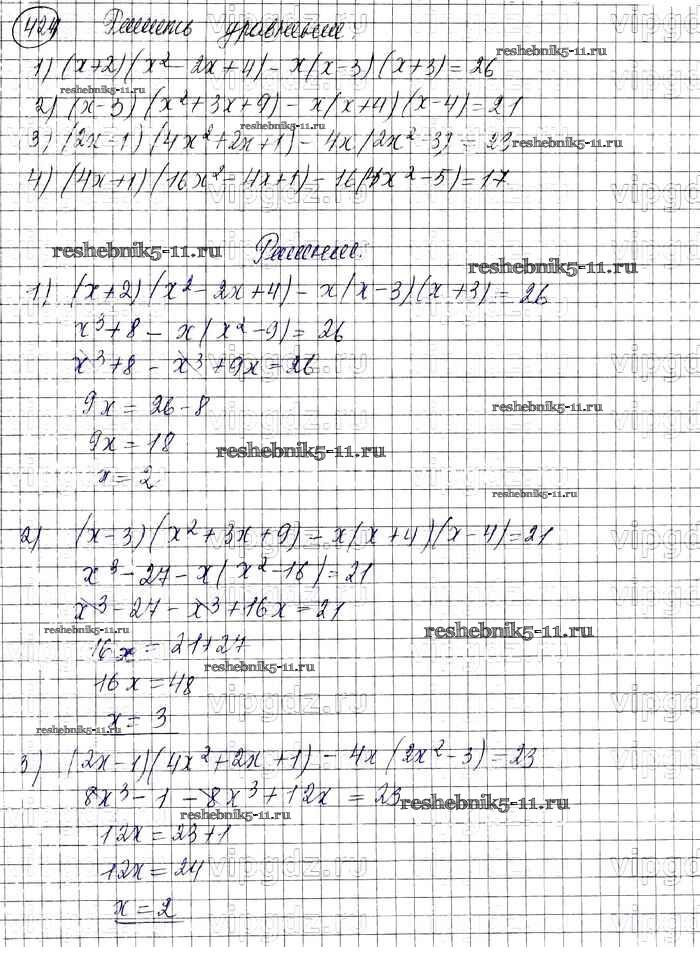 424 Решить уравнения
1) (x+2)(x²-2x+4)-x(x-3)(x+3)=26
2) (x-3)(x²+3x+9)-x(x+4)(x-4)=21
3) (2x-1)(4x²+2x+1)-4x(2x²-3)=23
4) (4x+1)(16x²-4x+1)-16(4x²-5)=17
Решение:
1) (x+2)(x²-2x+4)-x(x-3)(x+3)=26
x³+8-x(x²-9)=26
x³+8-x³+9x=26
9x=26-8
9x=18
x=2
2) (x-3)(x²+3x+9)-x(x+4)(x-4)=21
x³-27-x(x²-16)=21
x³-27-x³+16x=21
16x=21+27
16x=48
x=3
3) (2x-1)(4x²+2x+1)-4x(2x²-3)=23
8x³-1-8x³+12x=23
12x=23+1
12x=24
x=2
reshebnik5-11.ru
vipgdz.ru